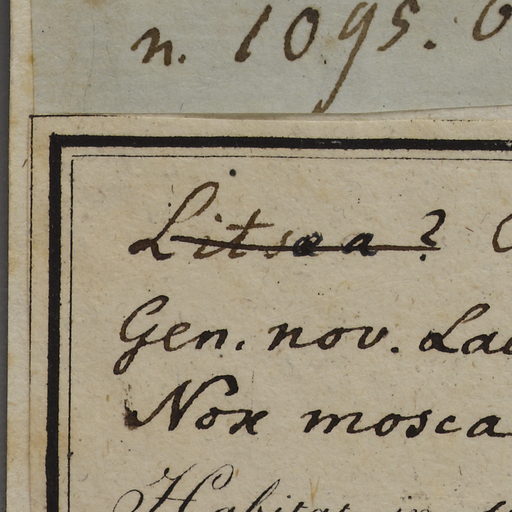 n. 1095.
Litsea?
Gen. nov. Lau
Nox mosca
Habitat in